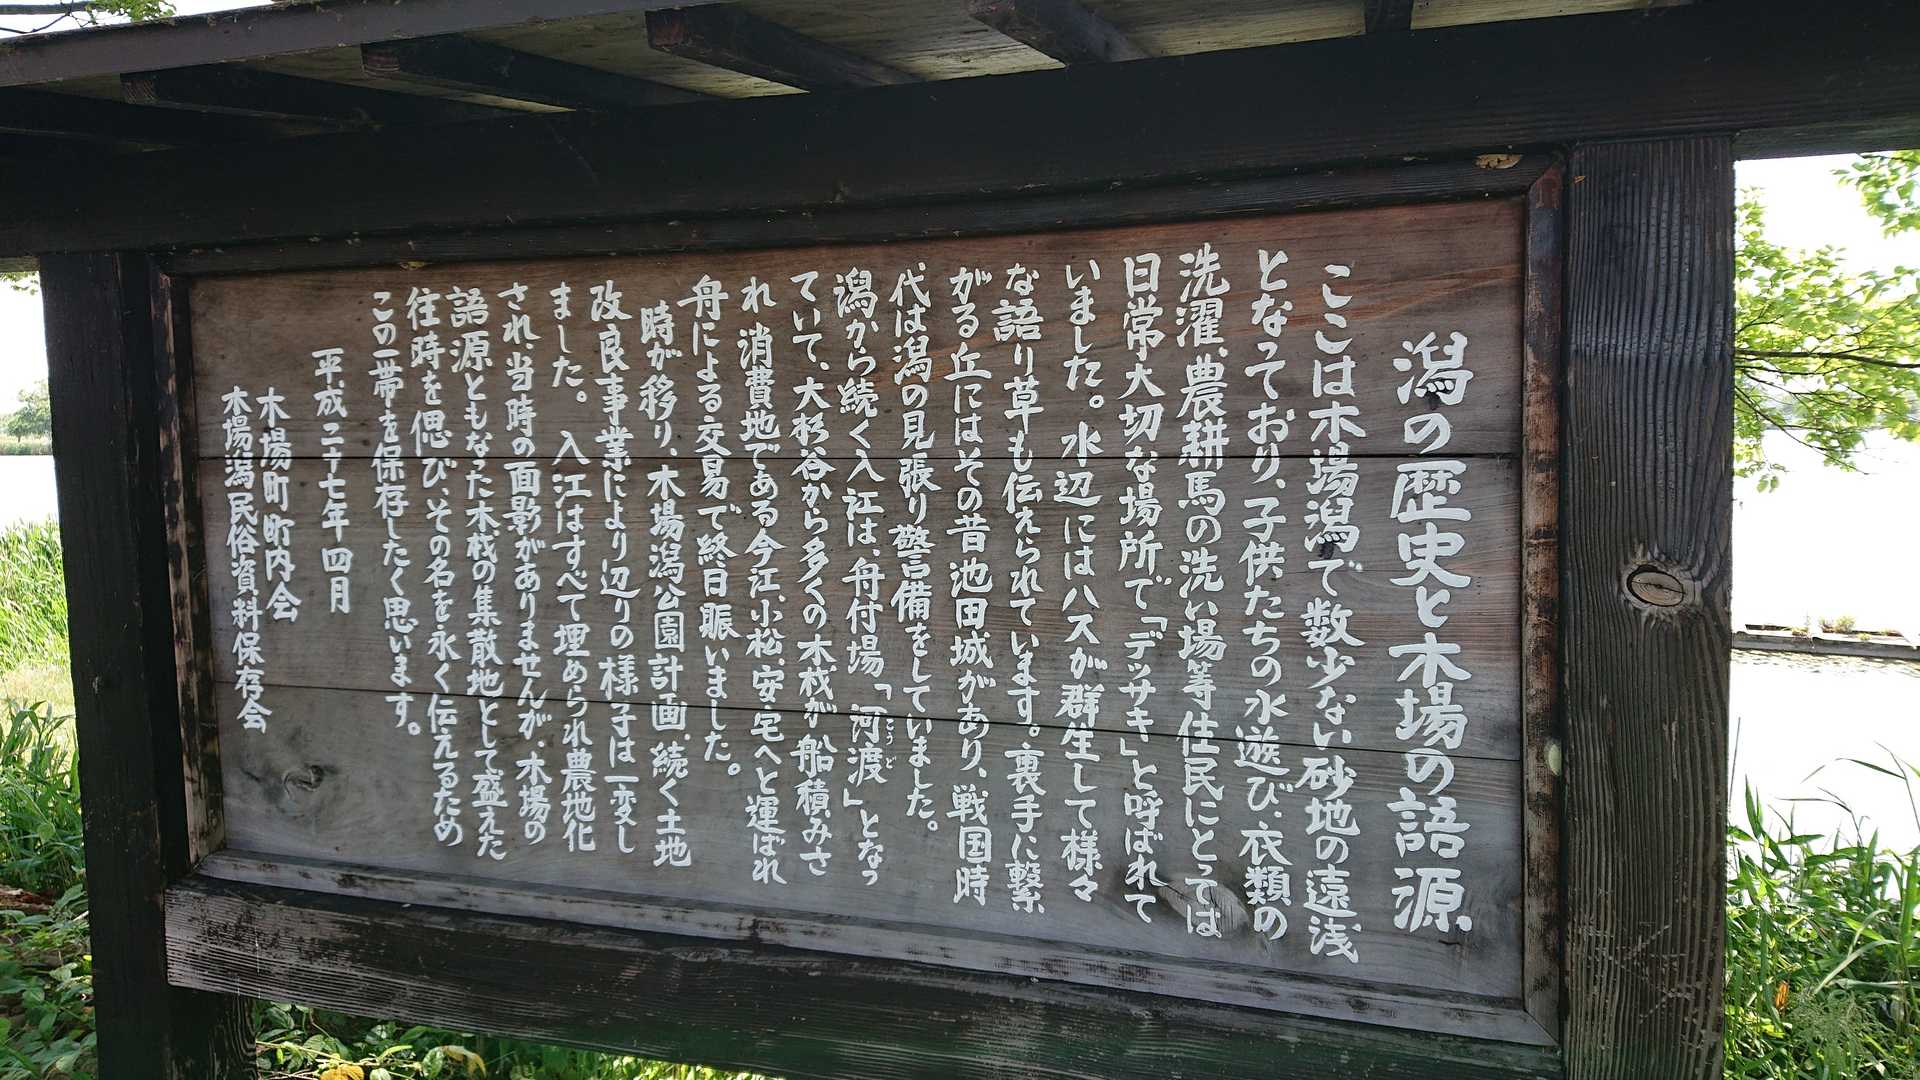 潟の歴史と木場の語源
ここは木場潟で数少ない砂地の遠浅
となっており、子供たちの水遊び、衣類の
洗濯、農耕馬の洗い場等住民にとっては
日常大切な場所で「デッサキ」と呼ばれて
いました。水辺にはハスが群生して様々
な語り草も伝えられています。裏手に繋
がる丘にはその昔池田城があり、戦国時
代は潟の見張り警備をしていました。
潟から続く入江は、舟付場「河渡」となっ
こうど
ていて、大杉谷から多くの木桟が船積みさ
れ消費地である今江、小松、安宅へと運ばれ
舟による交易で終日賑いました。
時が移り、木場潟公園計画、続く土地
改良事業により辺りの様子は一変し
ました。入江はすべて埋められ農地化
され、当時の面影がありませんが、木場の
語源ともなった木桟の集散地として盛えた
往時を偲び、その名を永く伝えるため
この一帯を保存したく思います。
平成二十七年四月
木場町町内会
木場潟民俗資料保存会